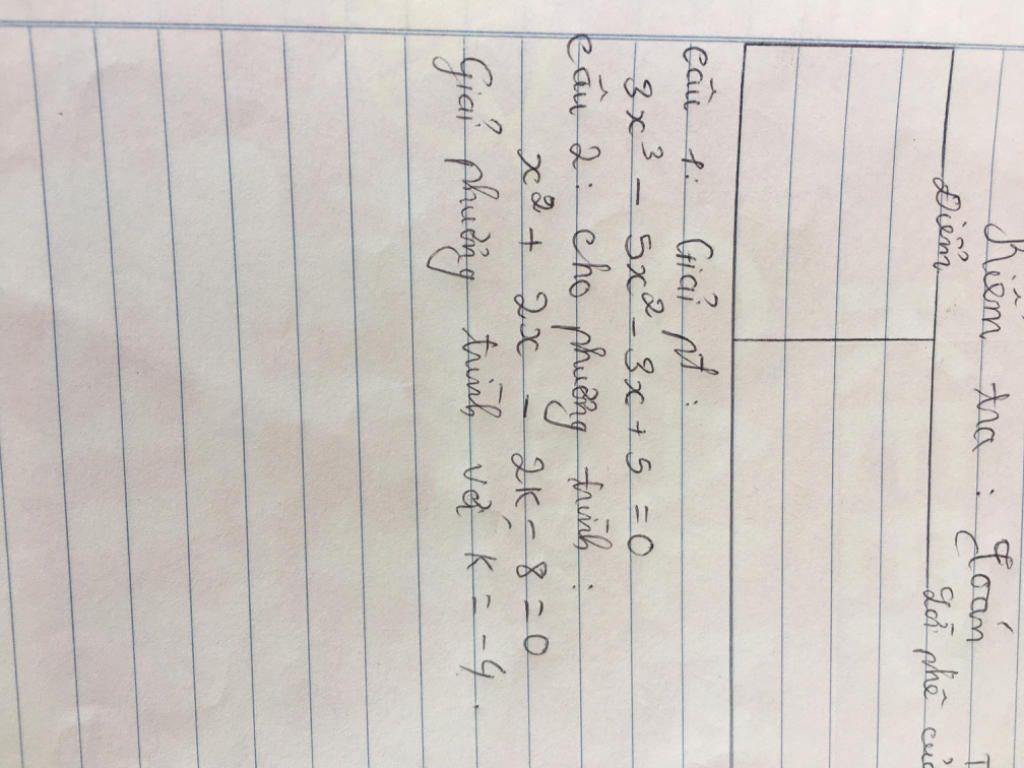 Kiểm tra : Toán
Điểm
Lời phê của
Câu 1: Giải pt :
3x³ - 5x² - 3x + 5 = 0
Câu 2: cho phương trình :
x² + 2x - 2k - 8 = 0
Giải phương trình với k = -4.